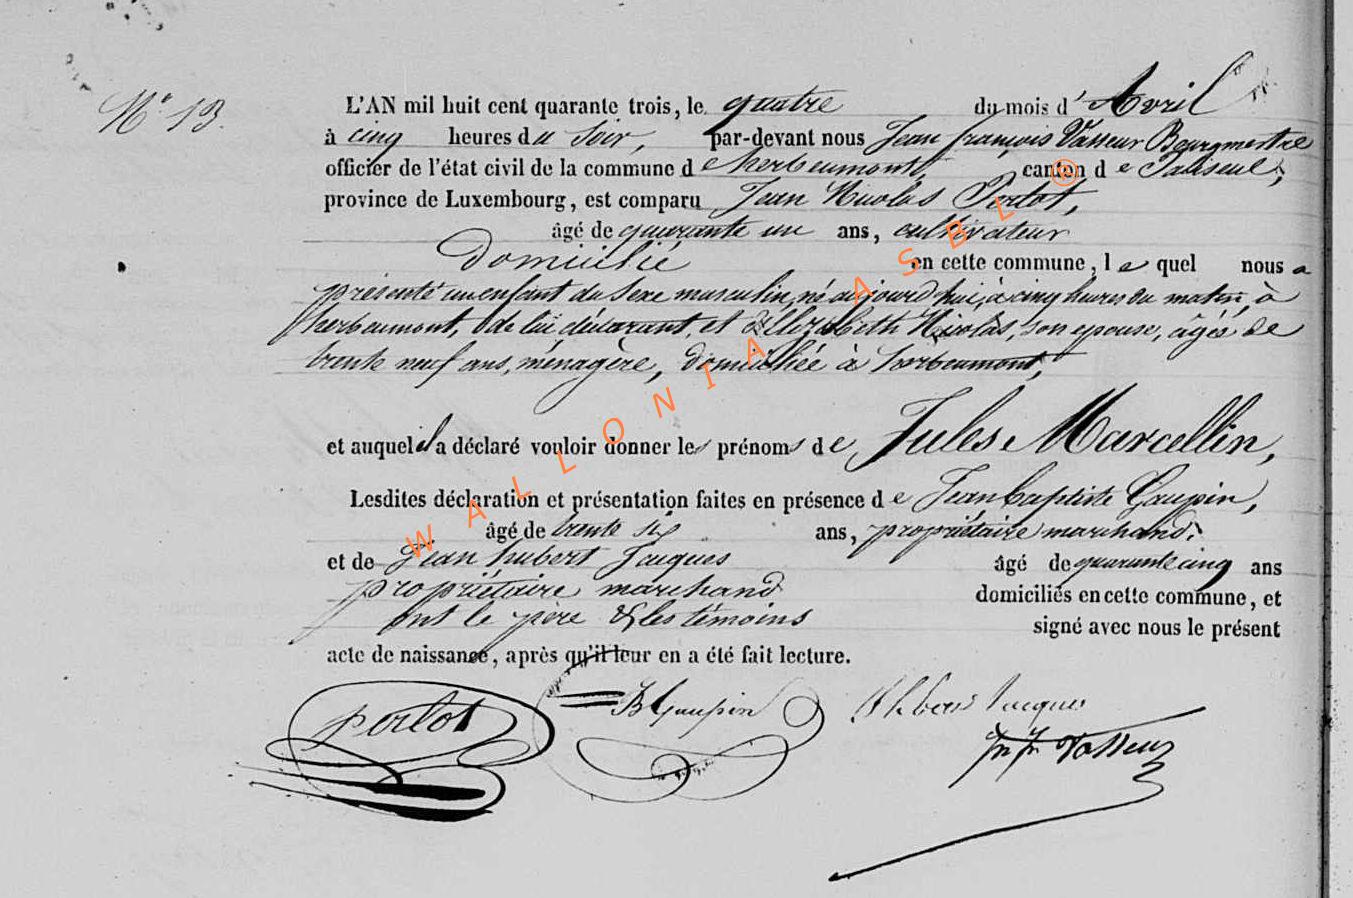 N° 13.
L'AN mil huit cent quarante trois, le quatre du mois d'Avril
à cinq heures du soir, par-devant nous Jean françois Vasseur Bourgmestre
officier de l'état civil de la commune de herbeumont, canton de Paliseul,
province de Luxembourg, est comparu Jean Nicolas Perlot,
âgé de quarante un ans, cultivateur
domicilié en cette commune, lequel nous a
présenté un enfant du sexe masculin, né aujourd'hui, à cinq heures du matin, à
herbeumont, de lui déclarant, et d'Elizabeth Nicolas, son epouse, âgée de
trente neuf ans, ménagère, domiciliée à herbeumont,
et auquel il a déclaré vouloir donner les prénoms de Jules Marcellin,
Lesdites déclaration et présentation faites en présence de Jean baptiste Gaupin,
âgé de trente six ans, propriétaire marchand,
et de Jean hubert Jacques âgé de quarante cinq ans
propriétaire marchand domiciliés en cette commune, et
ont le père & les témoins signé avec nous le présent
acte de naissance, après qu'il leur en a été fait lecture.
perlot JB Gaupin Jacques
J. F. Vasseur
WALLONIA ASBL ®